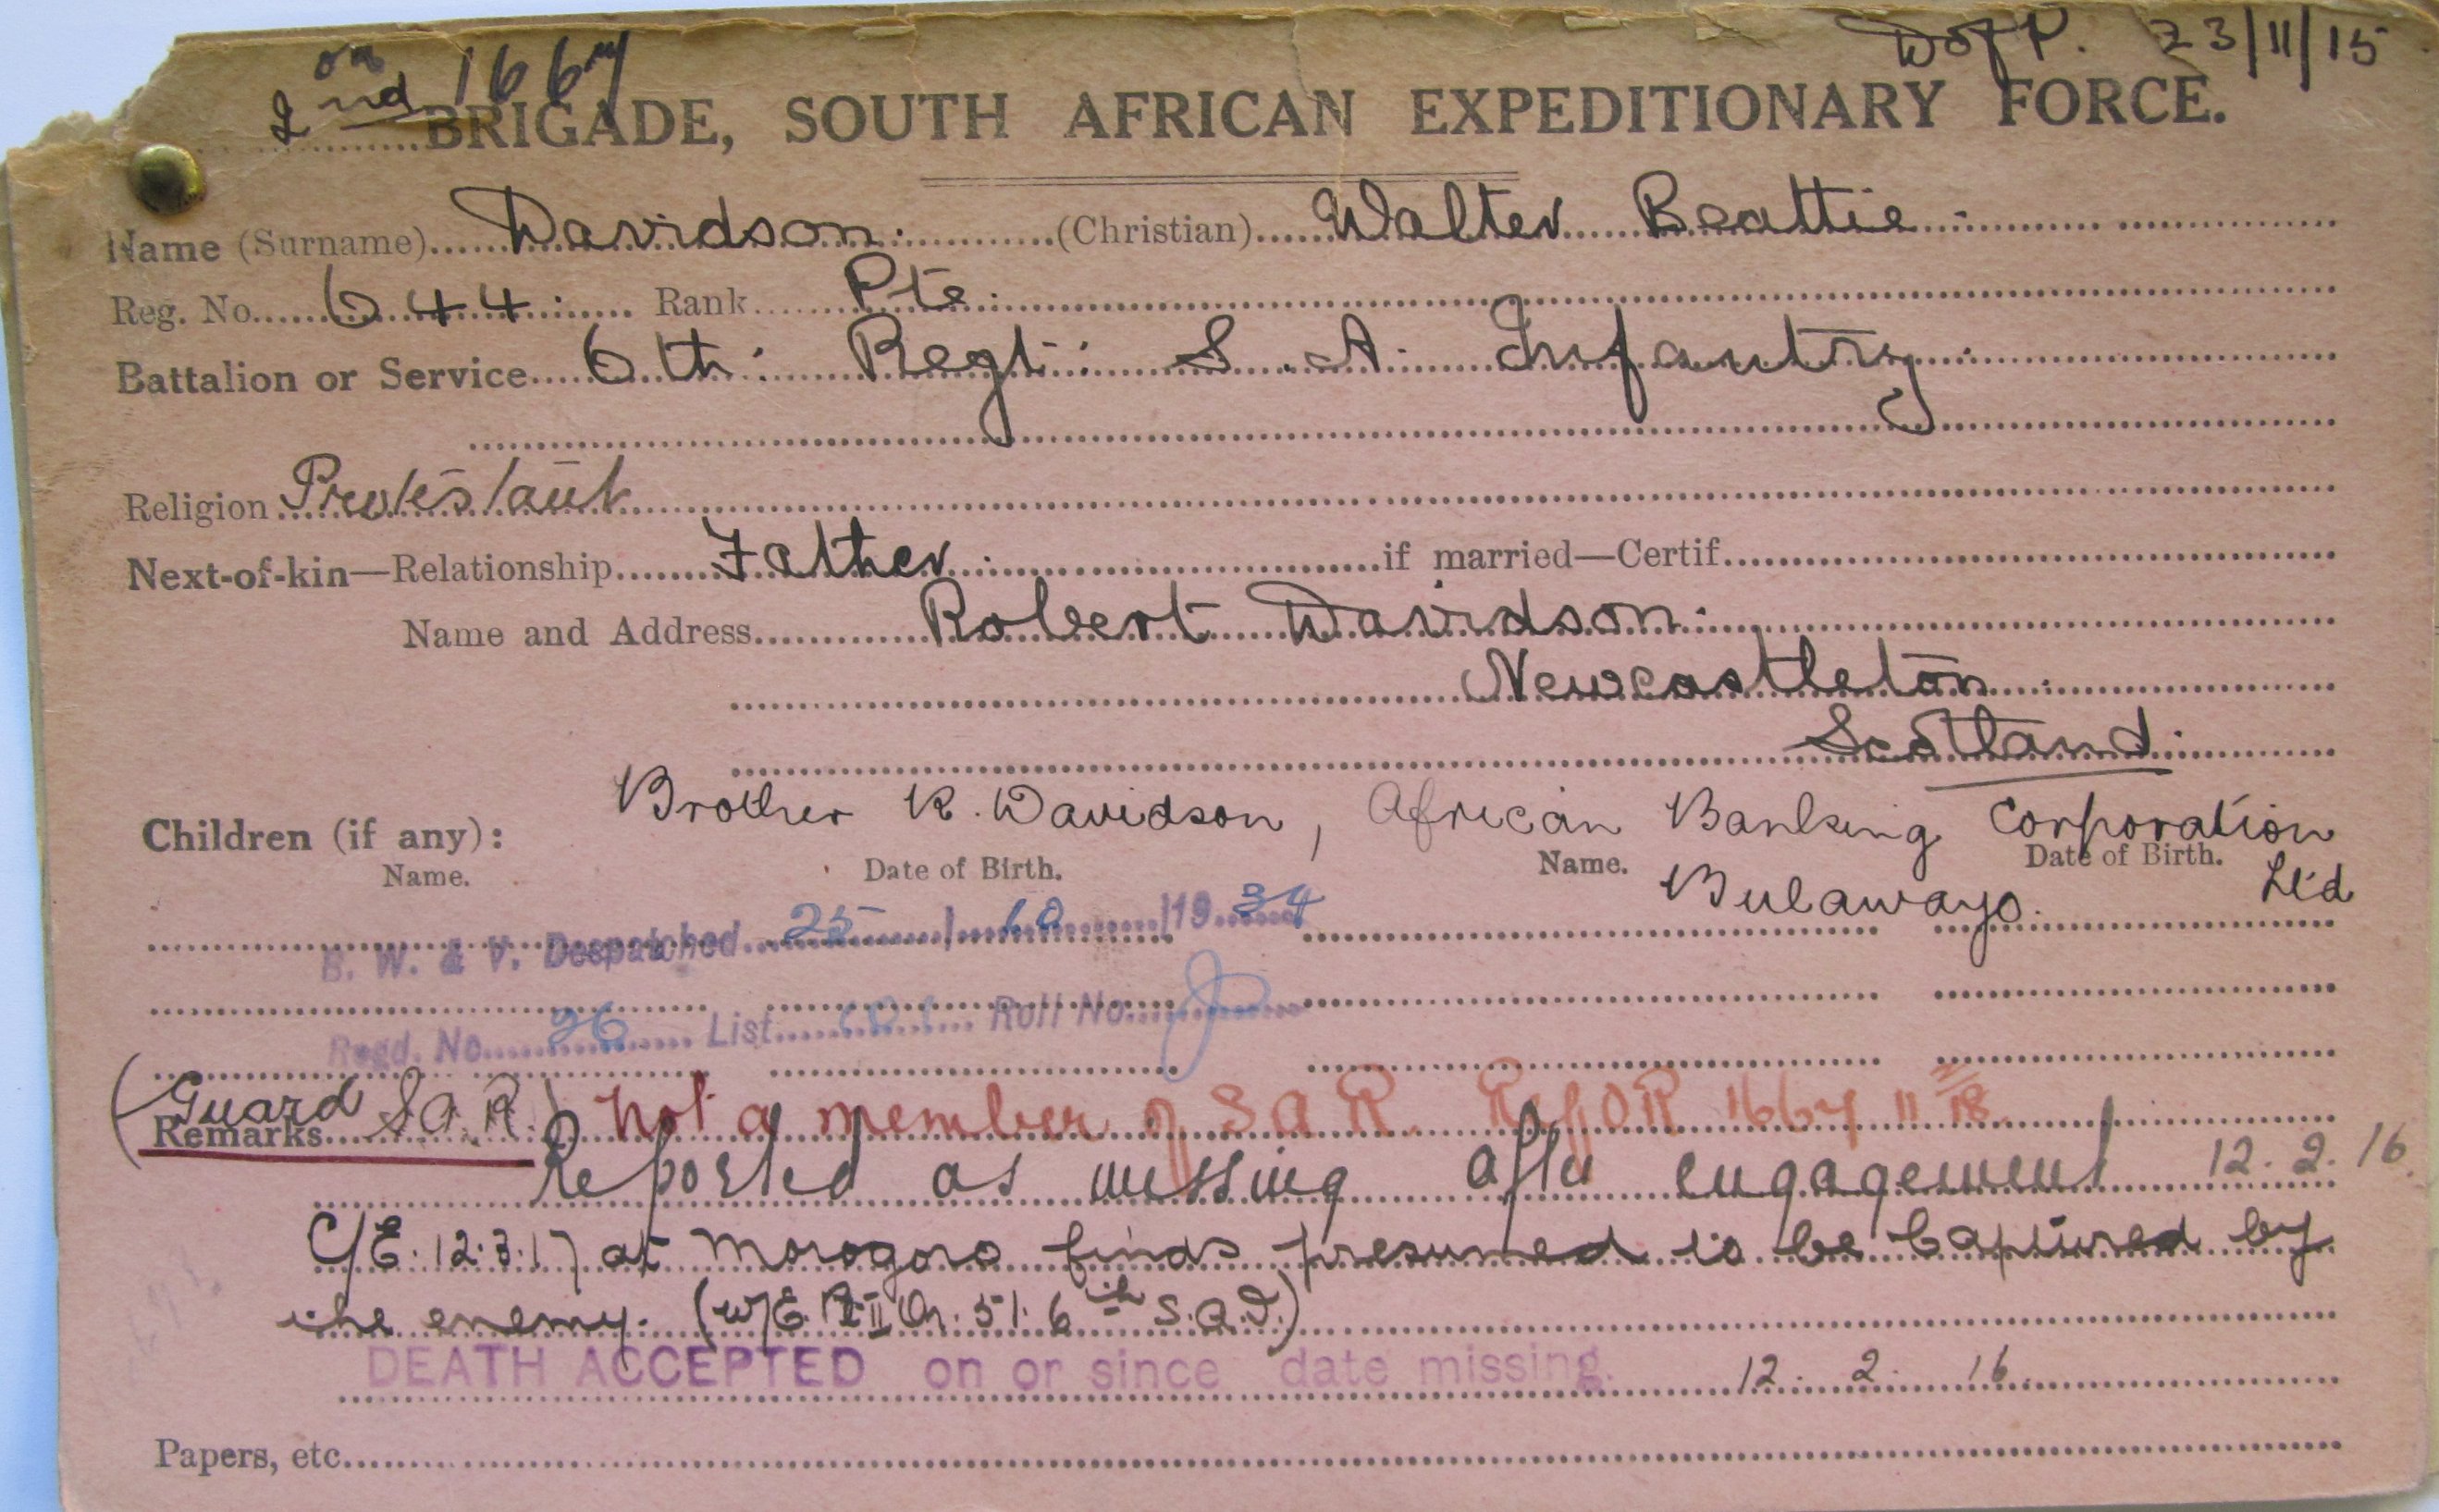 D of P. 23/11/15
2nd BRIGADE, SOUTH AFRICAN EXPEDITIONARY FORCE.
Name (Surname) Davidson. (Christian) Walter Beattie
Reg. No. 644 Rank Pte.
Battalion or Service 6th: Regt: S. A. Infantry
Religion Protestant
Next-of-kin—Relationship Father. if married—Certif.
Name and Address Robert Davidson.
Newcastleton
Scotland.
Brother R. Davidson, African Banking Corporation Ltd
Children (if any):
Name. Date of Birth. Name. Date of Birth.
Bulawayo.
B. W. & V. Despatched 25/10/1934
Regd. No. 26 List Roll No.
(Guard S.A.R.) not a member of S A R
Remarks
Reported as missing after engagement 12.2.16.
C/E. 12.3.17 at Morogoro finds presumed to be captured by
the enemy. 51. 6th S.A.I.)
DEATH ACCEPTED on or since date missing. 12. 2. 16.
Papers, etc.